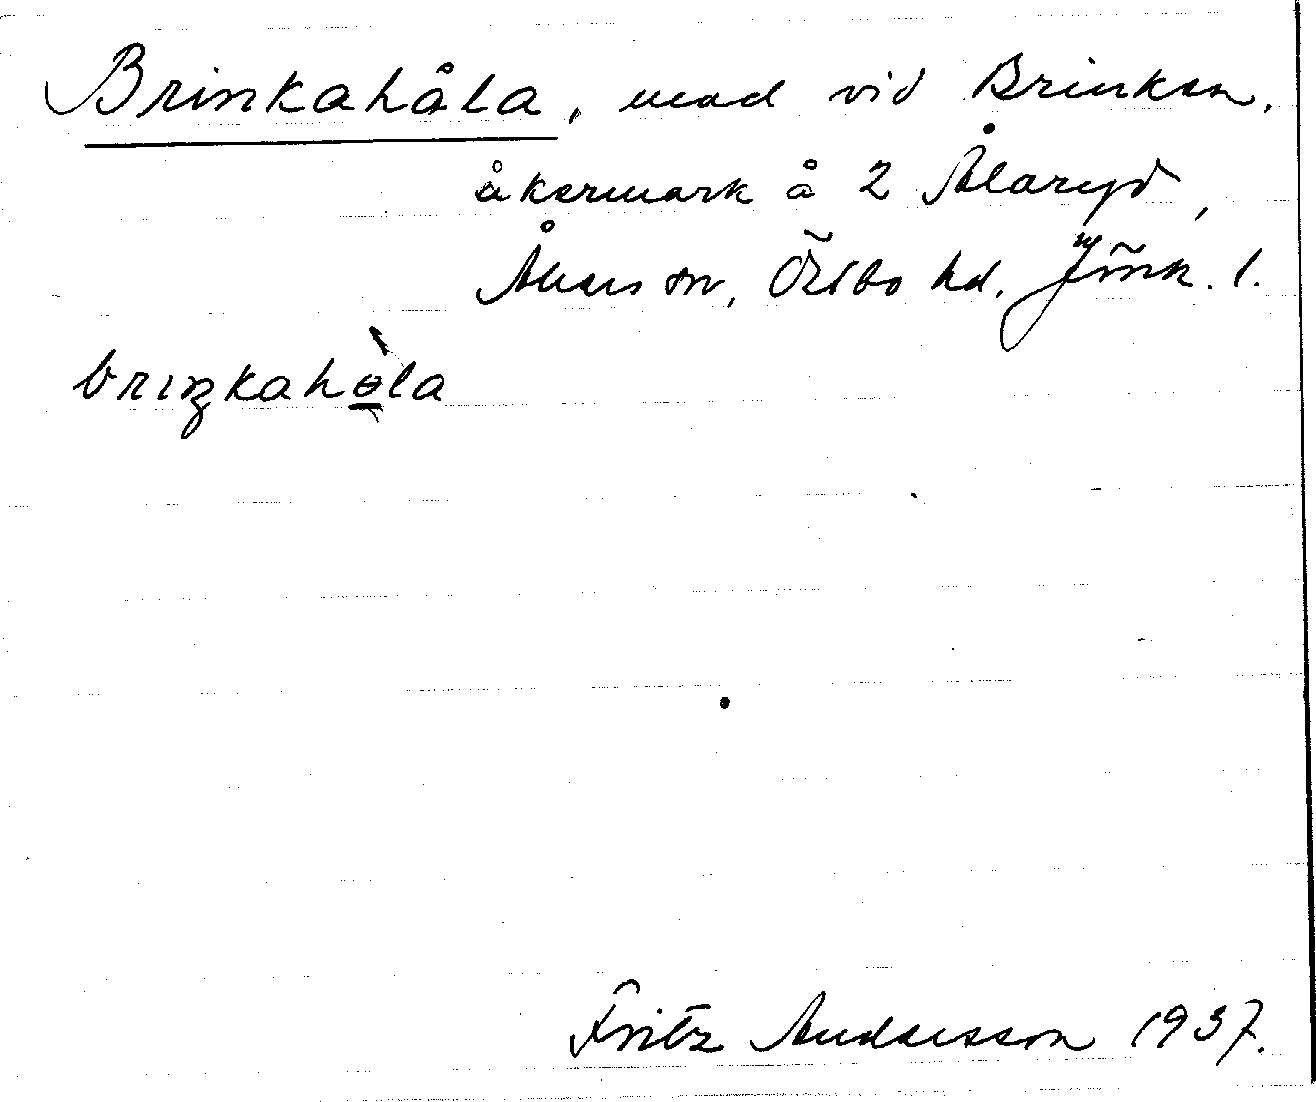 Brinkahåla, mad vid Brinken,
åkermark å 2 Ålaryd,
Åkers sn, Östbo hd. Jönk. l.
brıŋkahola
Fritz Andersson 1937.